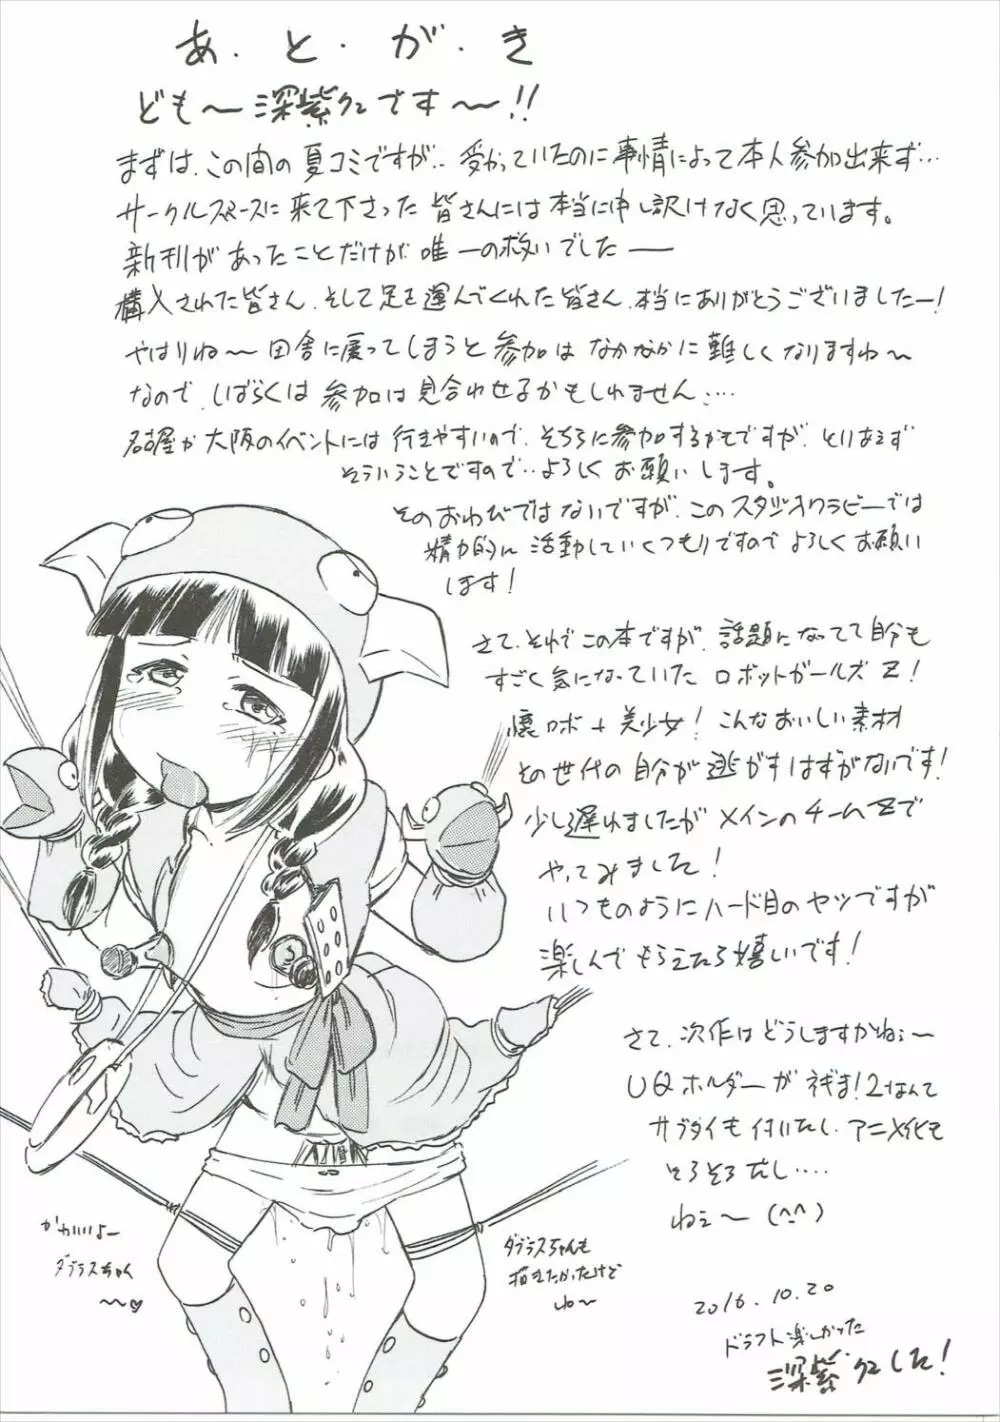 あ・と・が・き
ども～深紫クニです～!!
まずは、この間の夏コミですが‥受かっていたのに事情によって本人参加出来ず…
サークルスペースに来て下さった皆さんには本当に申し訳けなく思っています。
新刊があったことだけが唯一の救いでした――
購入された皆さん、そして足を運んでくれた皆さん、本当にありがとうございましたー!
やはりね～田舎に戻ってしまうと参加はなかなかに難しくなりますね～
なので、しばらくは参加は見合わせるかもしれません‥‥
名古屋か大阪のイベントには行きやすいので、そちらに参加するかもですが、とりあえず
そういうことですので‥よろしくお願いします。
そのおわびではないですが、このスタジオワラビーでは
精力的に活動していくつもりですのでよろしくお願い
します!
さて、それでこの本ですが、話題になってて自分も
すごく気になっていたロボットガールズZ!
懐ロボ+美少女!こんなおいしい素材
その世代の自分が逃がすはずがないです!
少し遅れましたがメインのチームZで
やってみました!
いつものようにハード目のヤツですが
楽しんでもらえたら嬉しいです!
さて、次作はどうしますかねぇ～
UQホルダーがネギま!2なんて
サブタイも付いたし、アニメ化も
そろそろだし‥‥
ねぇ～(^^)
かわいいよー
ダブラスちゃん
～～♡
ダブラスちゃんも
描きたかったけど
ね～
2016.10.20
ドラフト楽しかった
深紫クニした!